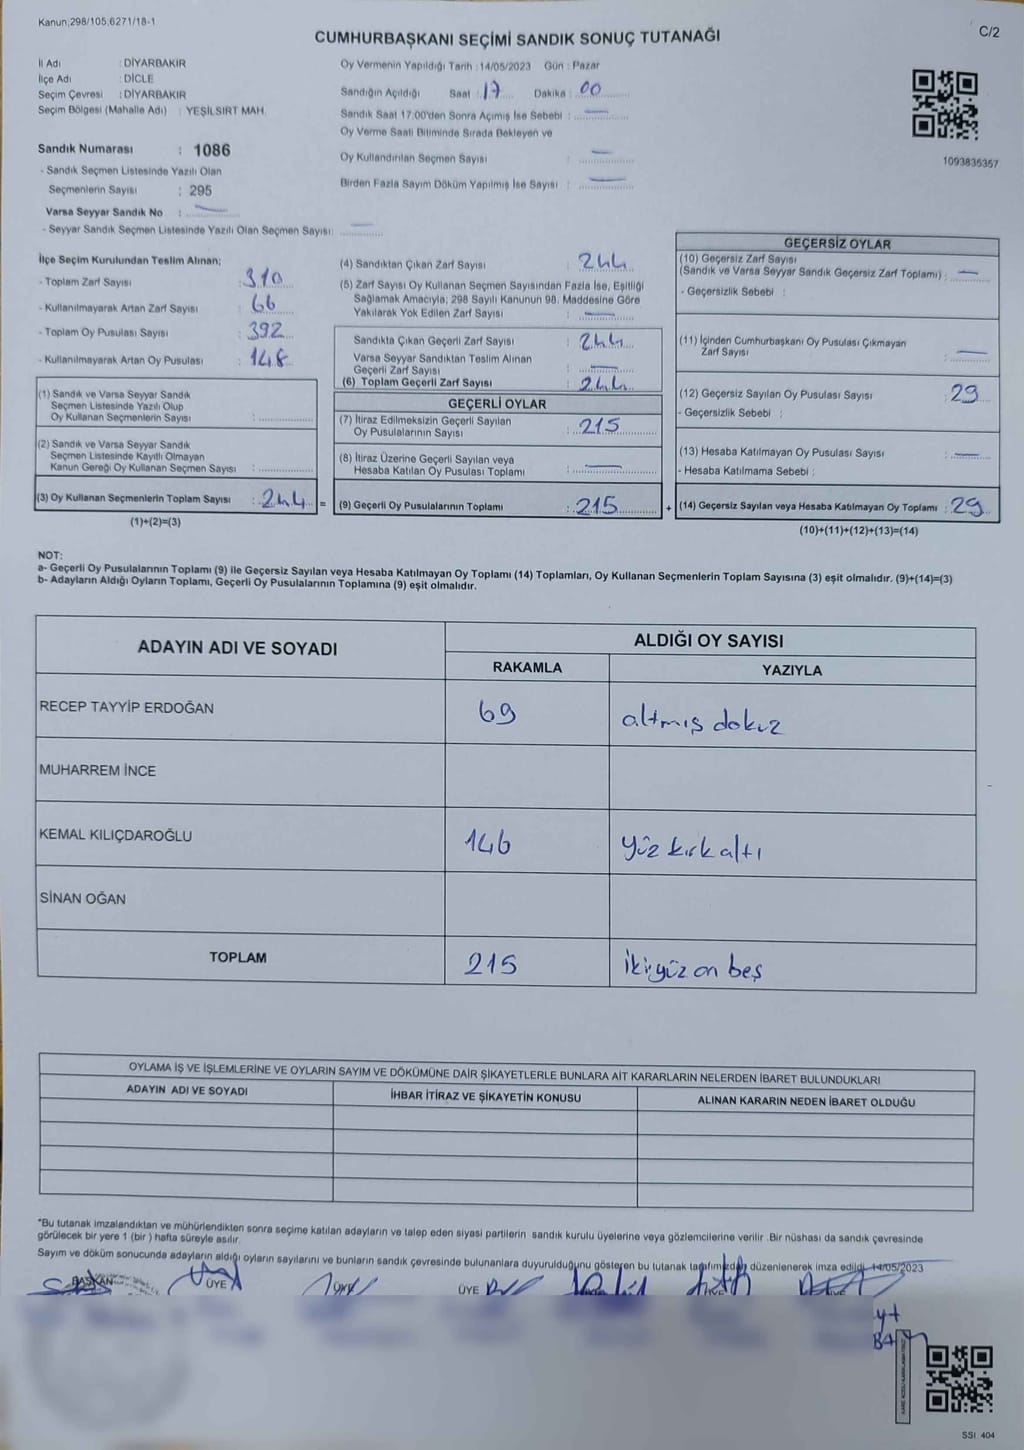 Kanun;298/105,6271/18-1
C/2
CUMHURBAŞKANI SEÇİMİ SANDIK SONUÇ TUTANAĞI
İl Adı : DİYARBAKIR
İlçe Adı : DİCLE
Seçim Çevresi : DİYARBAKIR
Seçim Bölgesi (Mahalle Adı) : YEŞİLSIRT MAH.
Sandık Numarası : 1086
- Sandık Seçmen Listesinde Yazılı Olan
Seçmenlerin Sayısı : 295
Varsa Seyyar Sandık No : —
- Seyyar Sandık Seçmen Listesinde Yazılı Olan Seçmen Sayısı: —
Oy Vermenin Yapıldığı Tarih : 14/05/2023 Gün : Pazar
Sandığın Açıldığı Saat : 17 Dakika : 00
Sandık Saat 17:00'den Sonra Açımış İse Sebebi : —
Oy Verme Saati Bitiminde Sırada Bekleyen ve
Oy Kullandırılan Seçmen Sayısı : —
Birden Fazla Sayım Döküm Yapılmış İse Sayısı : —
1093835357
İlçe Seçim Kurulundan Teslim Alınan;
- Toplam Zarf Sayısı : 310
- Kullanılmayarak Artan Zarf Sayısı : 66
- Toplam Oy Pusulası Sayısı : 392
- Kullanılmayarak Artan Oy Pusulası : 148
(1) Sandık ve Varsa Seyyar Sandık
Seçmen Listesinde Yazılı Olup
Oy Kullanan Seçmenlerin Sayısı :
(2) Sandık ve Varsa Seyyar Sandık
Seçmen Listesinde Kayıtlı Olmayan
Kanun Gereği Oy Kullanan Seçmen Sayısı :
(3) Oy Kullanan Seçmenlerin Toplam Sayısı : 244 =
(1)+(2)=(3)
(4) Sandıktan Çıkan Zarf Sayısı : 244
(5) Zarf Sayısı Oy Kullanan Seçmen Sayısından Fazla İse, Eşitliği
Sağlamak Amacıyla; 298 Sayılı Kanunun 98. Maddesine Göre
Yakılarak Yok Edilen Zarf Sayısı : —
Sandıkta Çıkan Geçerli Zarf Sayısı : 244
Varsa Seyyar Sandıktan Teslim Alınan
Geçerli Zarf Sayısı : —
(6) Toplam Geçerli Zarf Sayısı : 244
GEÇERLİ OYLAR
(7) İtiraz Edilmeksizin Geçerli Sayılan
Oy Pusulalarının Sayısı : 215
(8) İtiraz Üzerine Geçerli Sayılan veya
Hesaba Katılan Oy Pusulası Toplamı : —
(9) Geçerli Oy Pusulalarının Toplamı : 215 +
GEÇERSİZ OYLAR
(10) Geçersiz Zarf Sayısı
(Sandık ve Varsa Seyyar Sandık Geçersiz Zarf Toplamı) : —
- Geçersizlik Sebebi :
(11) İçinden Cumhurbaşkanı Oy Pusulası Çıkmayan
Zarf Sayısı : —
(12) Geçersiz Sayılan Oy Pusulası Sayısı : 29
- Geçersizlik Sebebi :
(13) Hesaba Katılmayan Oy Pusulası Sayısı : —
- Hesaba Katılmama Sebebi :
(14) Geçersiz Sayılan veya Hesaba Katılmayan Oy Toplamı : 29
(10)+(11)+(12)+(13)=(14)
NOT:
a- Geçerli Oy Pusulalarının Toplamı (9) ile Geçersiz Sayılan veya Hesaba Katılmayan Oy Toplamı (14) Toplamları, Oy Kullanan Seçmenlerin Toplam Sayısına (3) eşit olmalıdır. (9)+(14)=(3)
b- Adayların Aldığı Oyların Toplamı, Geçerli Oy Pusulalarının Toplamına (9) eşit olmalıdır.
ADAYIN ADI VE SOYADI ALDIĞI OY SAYISI
RAKAMLA YAZIYLA
RECEP TAYYİP ERDOĞAN 69 altmış dokuz
MUHARREM İNCE
KEMAL KILIÇDAROĞLU 146 yüz kırk altı
SİNAN OĞAN
TOPLAM 215 ikiyüz on beş
OYLAMA İŞ VE İŞLEMLERİNE VE OYLARIN SAYIM VE DÖKÜMÜNE DAİR ŞİKAYETLERLE BUNLARA AİT KARARLARIN NELERDEN İBARET BULUNDUKLARI
ADAYIN ADI VE SOYADI İHBAR İTİRAZ VE ŞİKAYETİN KONUSU ALINAN KARARIN NEDEN İBARET OLDUĞU
"Bu tutanak imzalandıktan ve mühürlendikten sonra seçime katılan adayların ve talep eden siyasi partilerin sandık kurulu üyelerine veya gözlemcilerine verilir .Bir nüshası da sandık çevresinde
görülecek bir yere 1 (bir ) hafta süreyle asılır.
Sayım ve döküm sonucunda adayların aldığı oyların sayılarını ve bunların sandık çevresinde bulunanlara duyurulduğunu gösteren bu tutanak tarafımızdan düzenlenerek imza edildi. 14/05/2023
BAŞKAN ÜYE ÜYE ÜYE
SSI 404